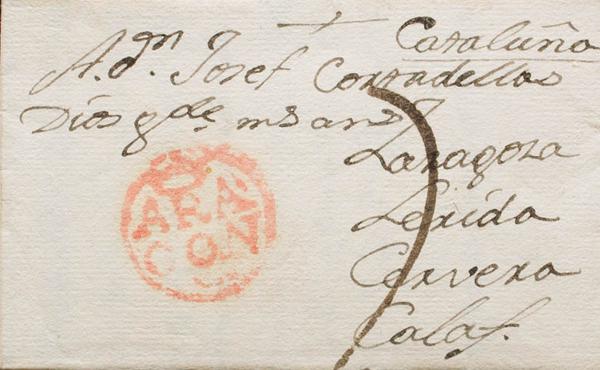 Cataluña
A. dⁿ. Josef Cortadellas
Dios gde ms ans
Zaragoza
Lerida
Cervera
Calaf.
ARA
GON